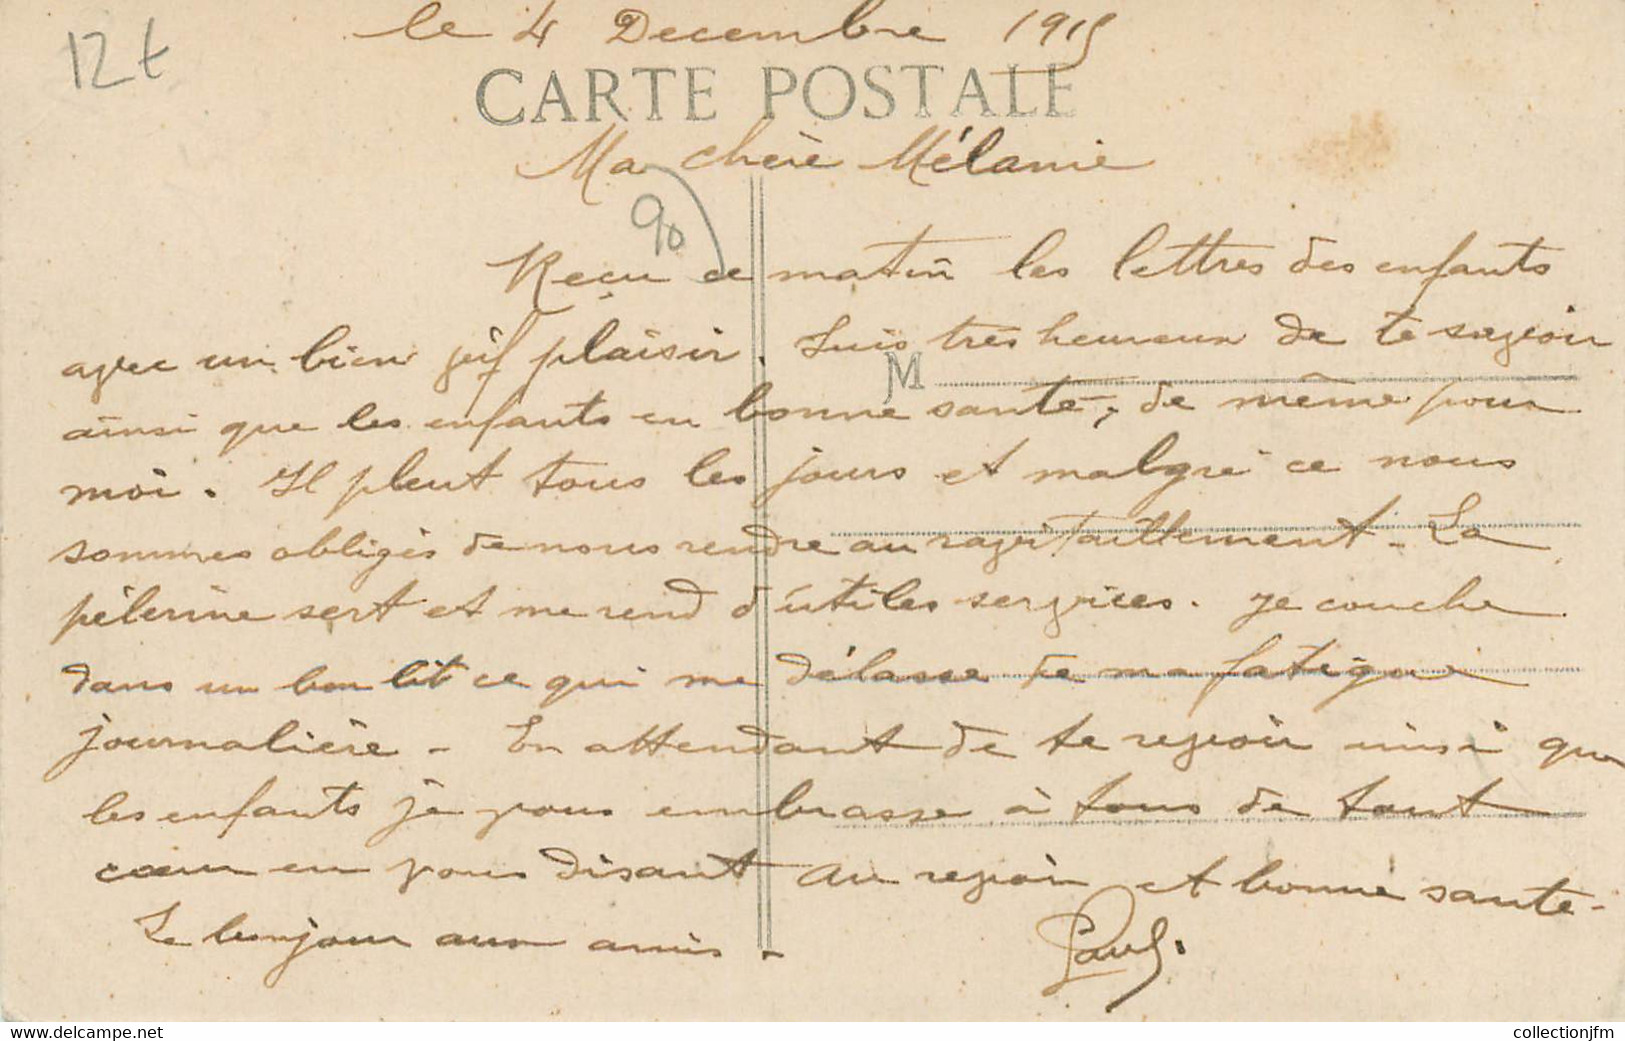 12 t
le 4 Decembre 1915
CARTE POSTALE
Ma chère Mélanie
90
Reçu ce matin les lettres des enfants
avec un bien vif plaisir. Suis très heureux de te savoir
M
ainsi que les enfants en bonne santé, de même pour
moi. Il pleut tous les jours et malgré ce nous
sommes obligés de nous rendre au ravitaillement - La
pèlerine sert et me rend d'utiles services. Je couche
dans un bon lit ce qui me délasse de ma fatigue
journalière - En attendant de te revoir ainsi que
les enfants je vous embrasse à tous de tout
cœur en vous disant au revoir et bonne santé -
Le bonjour aux amis -
Paul.
www.delcampe.net
collectionjfm